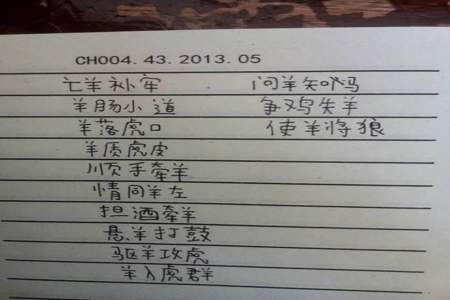 CH004.43.2013.05
亡羊补牢 问羊知马
羊肠小道 争鸡失羊
羊落虎口 使羊将狼
羊质虎皮
顺手牵羊
情同羊左
担酒牵羊
悬羊打鼓
驱羊攻虎
羊入虎群